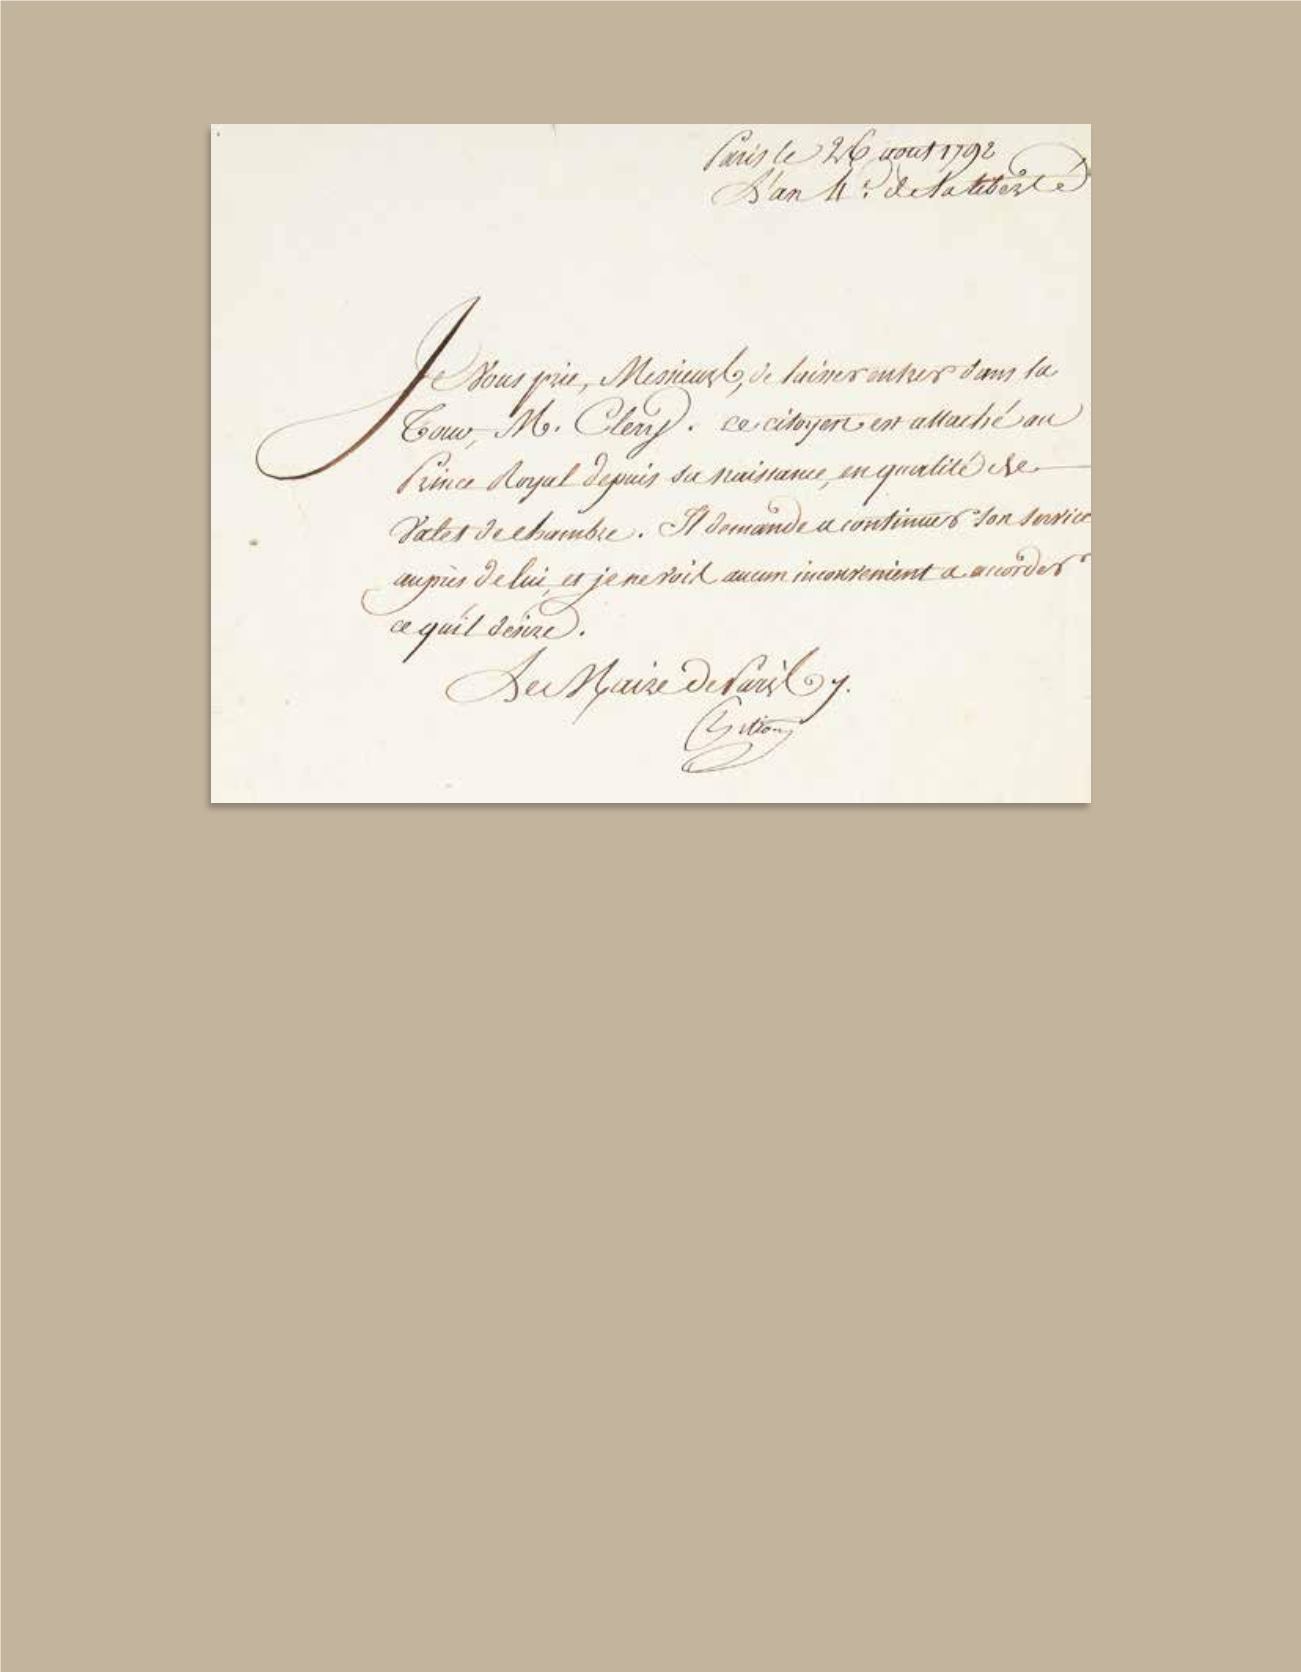 Paris le 26 aout 1792
L'an 4e. de la liberté
Je Vous prie, Messieurs, de laisser entrer dans la
Tour, M. Clery. ce citoyen est attaché au
Prince Royal depuis sa naissance, en qualité de
Valet de chambre. Il demande a continuer son service
auprès de lui, et je ne vois aucun inconvenient a accorder
ce qu'il désire.
Le Maire de Paris
Petion